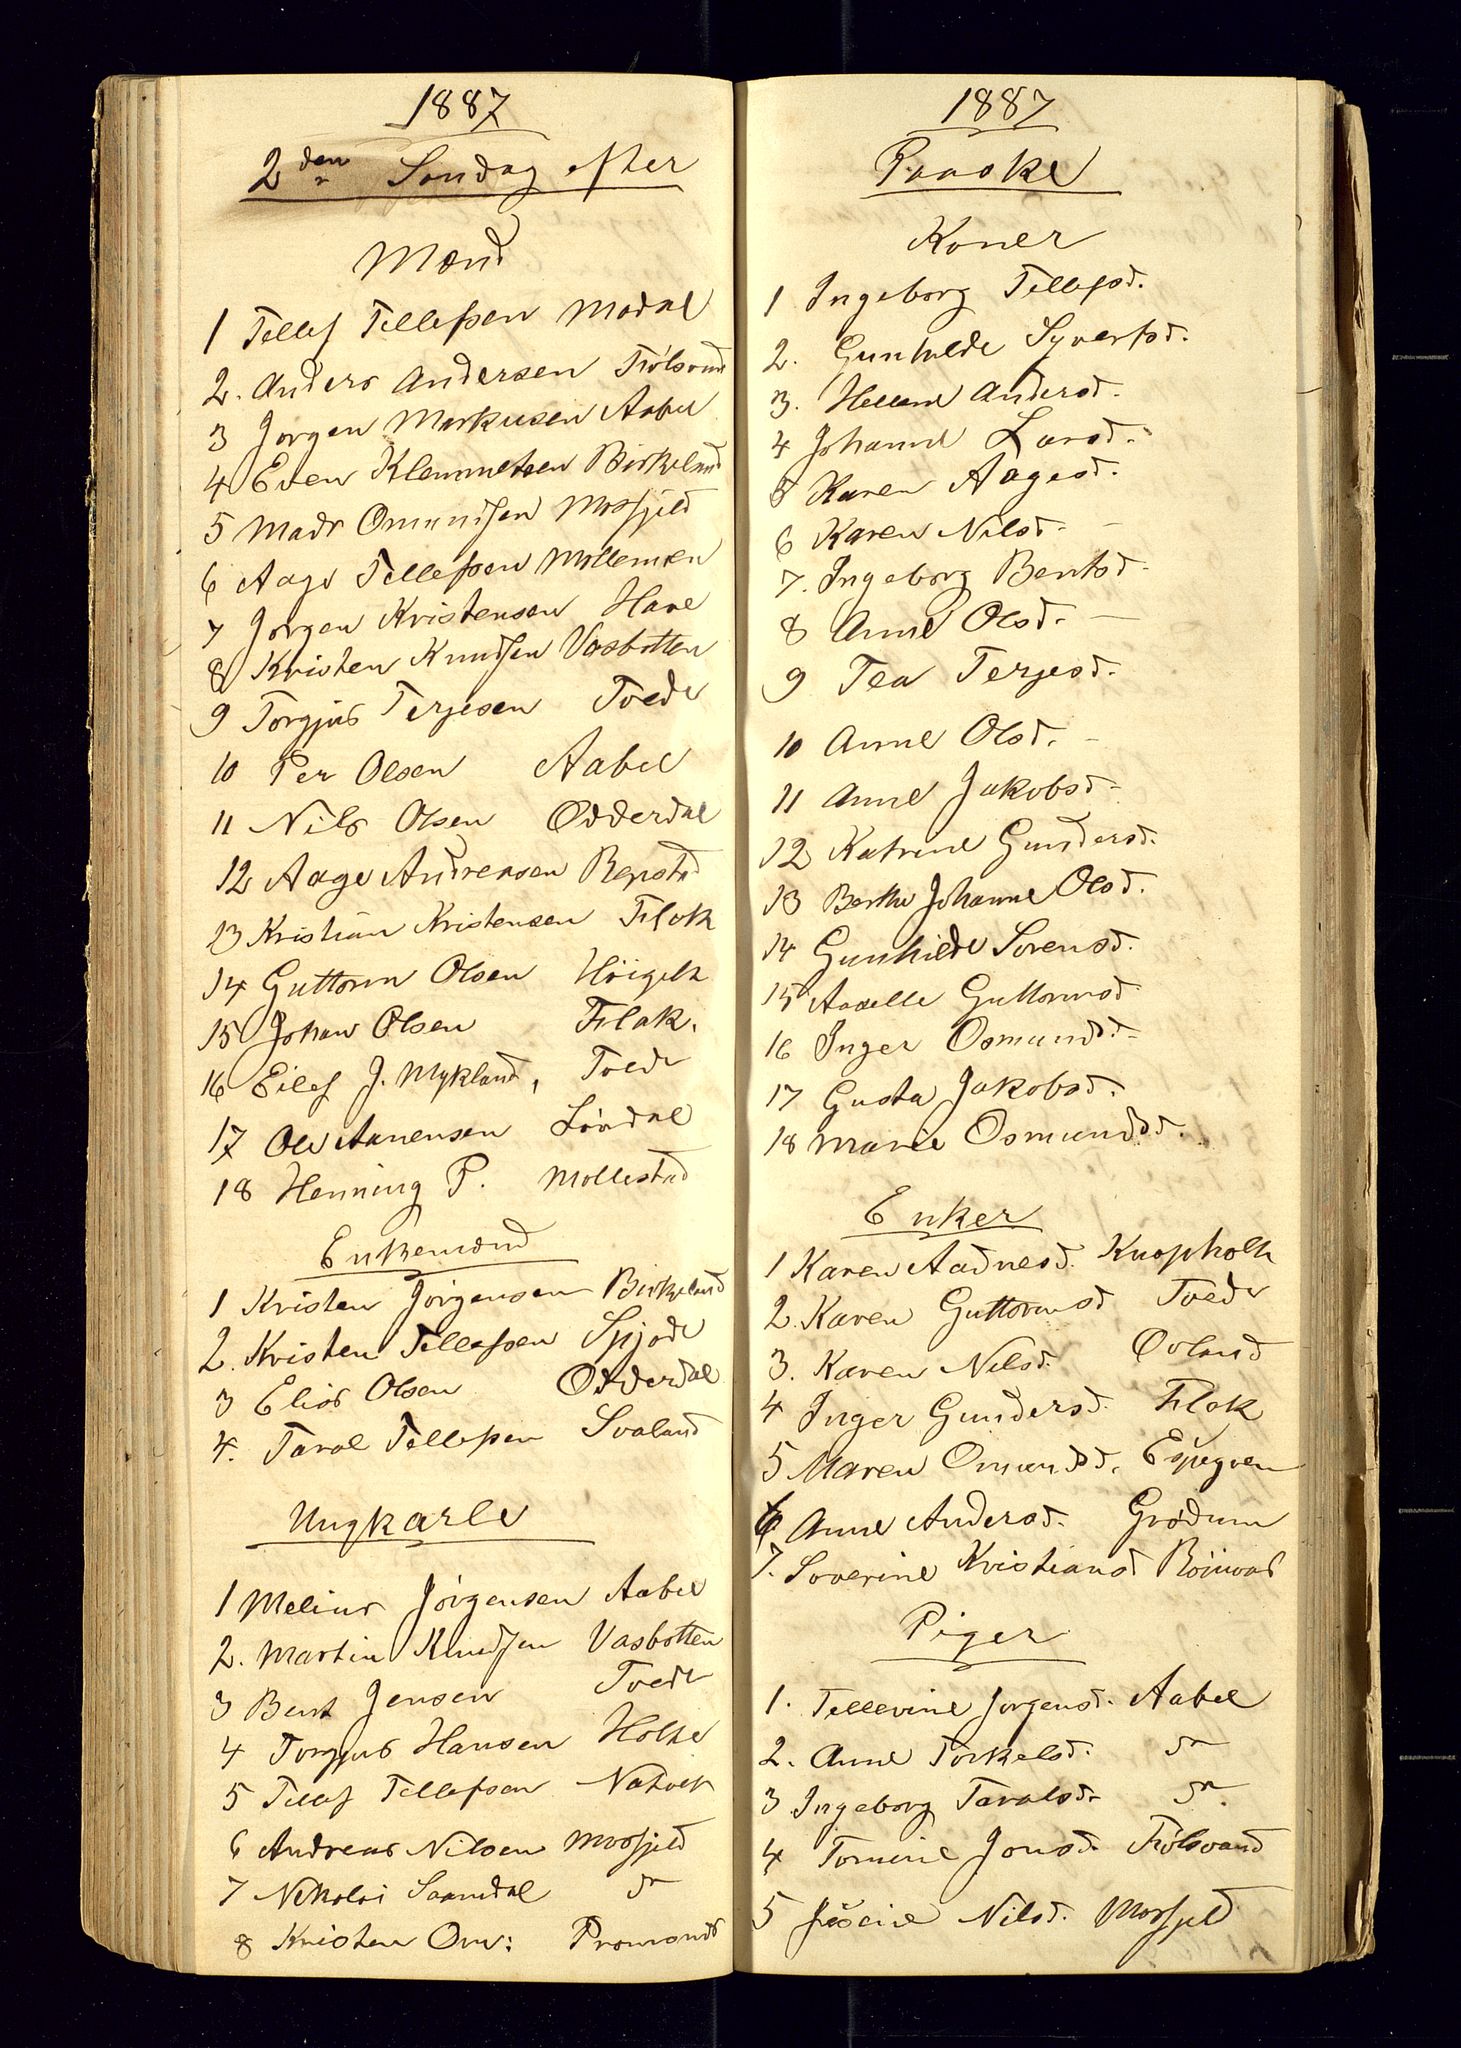 1887
2den Søndag efter
Mænd
1 Tellef Tellefsen Modal
2. Anders Andersen Fiölsvand
3 Jørgen Markusen Aabel
4 Even Klemmetsen Birkeland
5 Mads Omundsen Mosfjeld
6 Aage Tellefsen Mollemoen
7 Jørgen Kristensen Have
8 Kristen Knudsen Vasbotten
9 Torgjus Terjesen Tvede
10 Per Olsen Aabel
11 Nils Olsen Odderdal
12 Aage Andreasen Repstad
13 Kristian Kristensen Flak
14 Guttorm Olsen Höigilt
15 Johan Olsen Flak.
16 Eilef J. Mykland, Tvede
17 Ole Aanensen Lördal
18 Henning P. Mollestad
Enkemænd
1 Kristen Jørgensen Birkeland
2. Kristen Tellefsen Spjode
3 Elias Olsen Odderdal
4. Tarol Tellefsen Svaland
Ungkarle
1 Melius Jørgensen Aabel
2. Martin Knudsen Vasbotten
3 Bent Jensen Tvede
4 Torgjus Hansen Holte
5 Tellef Tellefsen Natvet
6 Andreas Nilsen Mosfjeld
7 Nikolai Saandal do
8 Kristen Om:
1887
Paaske
Koner
1 Ingeborg Tellefsd.
2. Gunhilde Syvertsd.
3. Hellene Andersd.
4 Johanne Larsd.
5 Karen Aagesd.
6 Karen Nilsd. —
7. Ingeborg Bentsd.
8 Anne Olsd. —
9 Tea Terjesd.
10 Anne Olsd. —
11 Anne Jakobsd.
12 Katrine Gundersd.
13 Berthe Johanne Olsd.
14 Gunhilde Sørensd.
15 Aaselle Guttormsd.
16 Inger Osmundsd.
17 Gusta Jakobsd.
18 Marie Osmundsd.
Enker
1 Karen Aadnesd. Knapholt
2. Karen Guttormsd Tvede
3. Karen Nilsd. Ovland
4 Inger Gundersd. Flak
5 Maren Omundsd. Espegren
6 Anne Andersd. Grødum
7. Soverine Kristiansd
Piger
1. Tellevine Jorgensd. Aabel
2. Anne Torkelsd. do
3 Ingeborg Taralsd. do
4 Tomine Jonsd. Fiölsvand
5 Nilsd. Mosfjeld